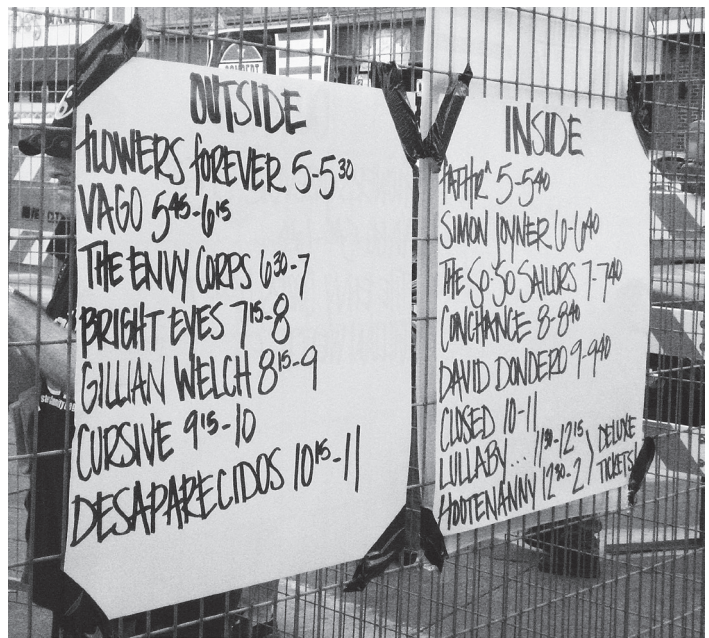 OUTSIDE
FLOWERS FOREVER 5-5³⁰
VAGO 5⁴⁵-6¹⁵
THE ENVY CORPS 6³⁰-7
BRIGHT EYES 7¹⁵-8
GILLIAN WELCH 8¹⁵-9
CURSIVE 9¹⁵-10
DESAPARECIDOS 10¹⁵-11
INSIDE
FATHR^ 5-5⁴⁰
SIMON JOYNER 6-6⁴⁰
THE SO-SO SAILORS 7-7⁴⁰
CONCHANCE 8-8⁴⁰
DAVID DONDERO 9-9⁴⁰
CLOSED 10-11
LULLABY... 11³⁰-12¹⁵
HOOTENANNY 12³⁰-2
} DELUXE
TICKETS!